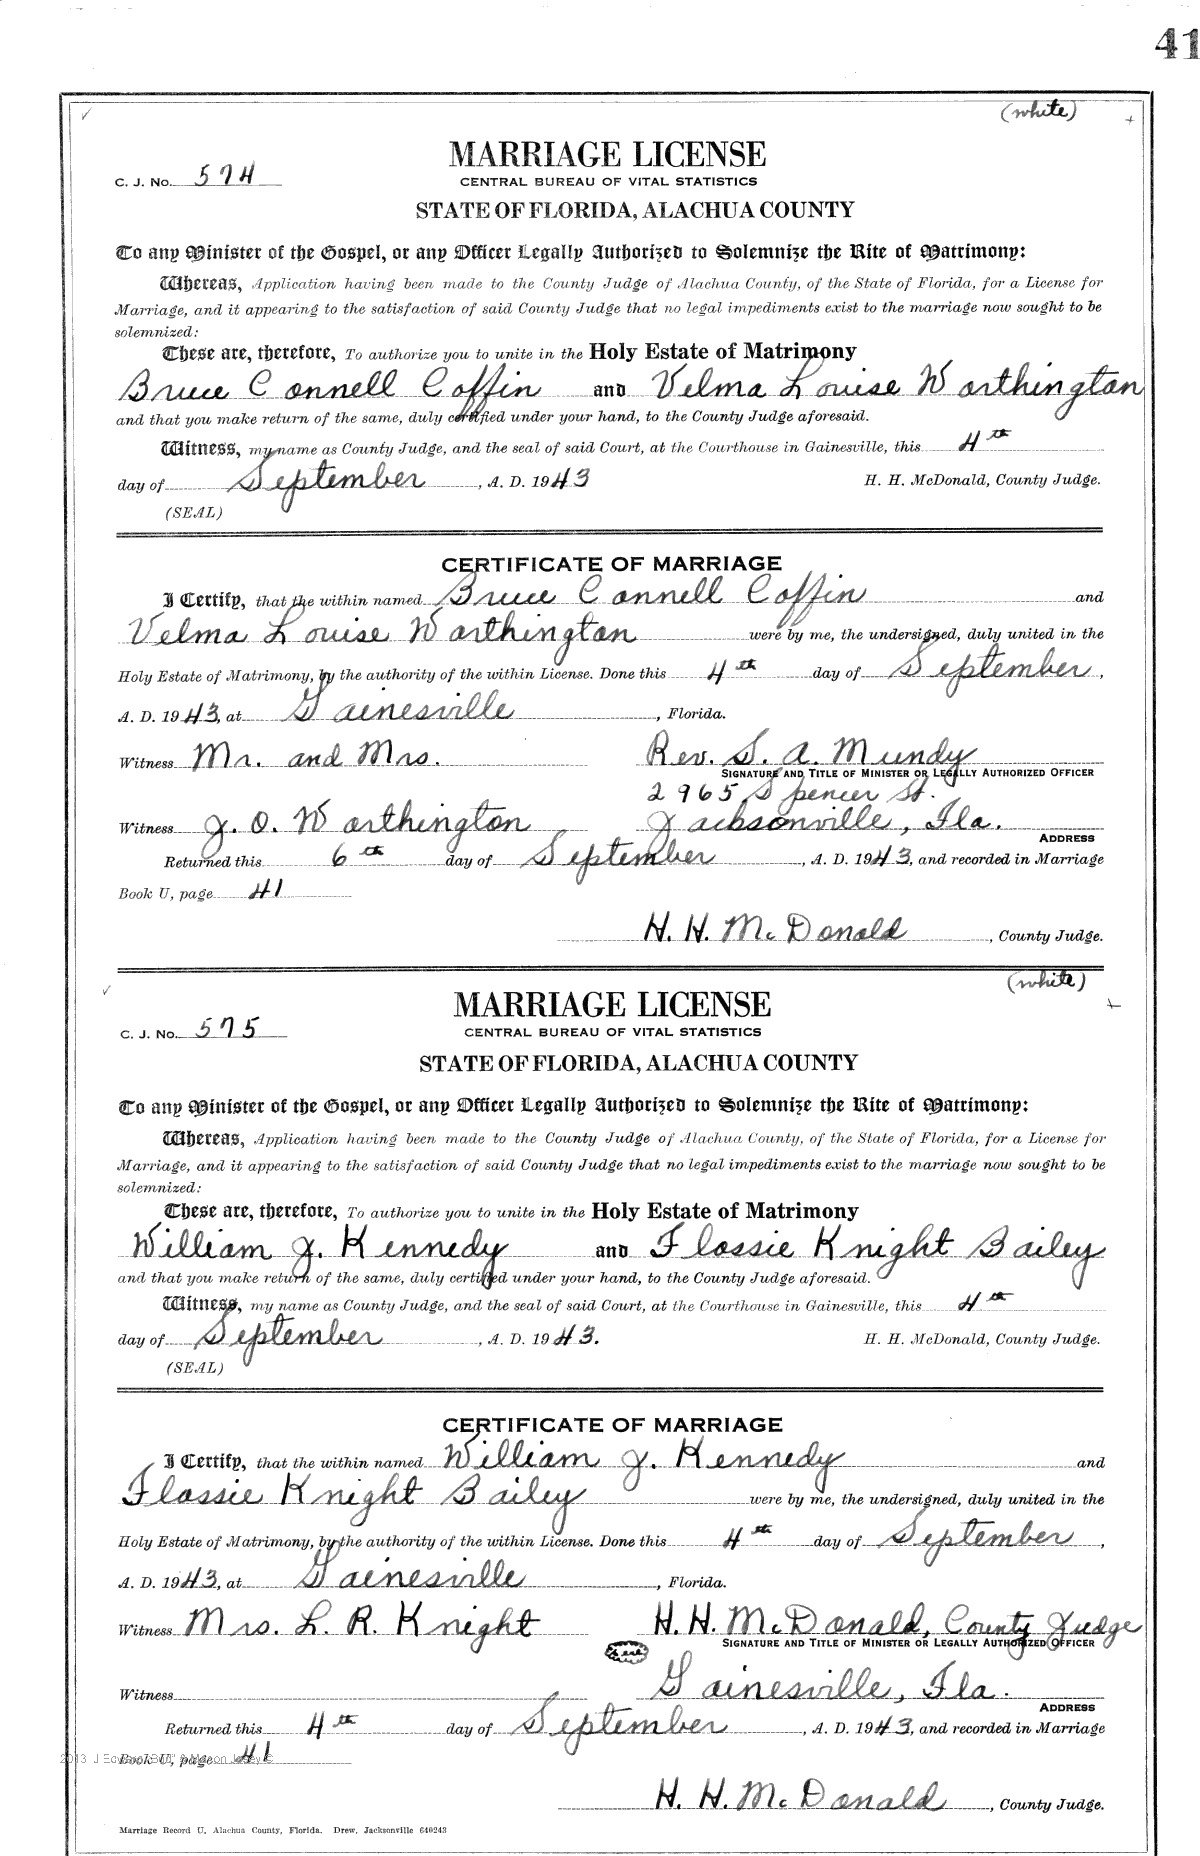 41
(white)
MARRIAGE LICENSE
C. J. No. 574
CENTRAL BUREAU OF VITAL STATISTICS
STATE OF FLORIDA, ALACHUA COUNTY
To any Minister of the Gospel, or any Officer Legally Authorized to Solemnize the Rite of Matrimony:
Whereas, Application having been made to the County Judge of Alachua County, of the State of Florida, for a License for
Marriage, and it appearing to the satisfaction of said County Judge that no legal impediments exist to the marriage now sought to be
solemnized:
These are, therefore, To authorize you to unite in the Holy Estate of Matrimony
Bruce Connell Coffin and Velma Louise Worthington
and that you make return of the same, duly certified under your hand, to the County Judge aforesaid.
Witness, my name as County Judge, and the seal of said Court, at the Courthouse in Gainesville, this 4th
day of September, A. D. 1943 H. H. McDonald, County Judge.
(SEAL)
CERTIFICATE OF MARRIAGE
I Certify, that the within named Bruce Connell Coffin and
Velma Louise Worthington were by me, the undersigned, duly united in the
Holy Estate of Matrimony, by the authority of the within License. Done this 4th day of September,
A. D. 1943, at Gainesville, Florida.
Witness Mr. and Mrs. Rev. S. A. Mundy
SIGNATURE AND TITLE OF MINISTER OR LEGALLY AUTHORIZED OFFICER
2965 Spencer St.
Witness J. O. Worthington Jacksonville, Fla.
ADDRESS
Returned this 6th day of September, A. D. 1943, and recorded in Marriage
Book U, page 41
H. H. McDonald, County Judge.
(white)
MARRIAGE LICENSE
C. J. No. 575
CENTRAL BUREAU OF VITAL STATISTICS
STATE OF FLORIDA, ALACHUA COUNTY
To any Minister of the Gospel, or any Officer Legally Authorized to Solemnize the Rite of Matrimony:
Whereas, Application having been made to the County Judge of Alachua County, of the State of Florida, for a License for
Marriage, and it appearing to the satisfaction of said County Judge that no legal impediments exist to the marriage now sought to be
solemnized:
These are, therefore, To authorize you to unite in the Holy Estate of Matrimony
William J. Kennedy and Flossie Knight Bailey
and that you make return of the same, duly certified under your hand, to the County Judge aforesaid.
Witness, my name as County Judge, and the seal of said Court, at the Courthouse in Gainesville, this 4th
day of September, A. D. 1943. H. H. McDonald, County Judge.
(SEAL)
CERTIFICATE OF MARRIAGE
I Certify, that the within named William J. Kennedy and
Flossie Knight Bailey were by me, the undersigned, duly united in the
Holy Estate of Matrimony, by the authority of the within License. Done this 4th day of September,
A. D. 1943, at Gainesville, Florida.
Witness Mrs. L. R. Knight H. H. McDonald, County Judge
SIGNATURE AND TITLE OF MINISTER OR LEGALLY AUTHORIZED OFFICER
Gainesville, Fla.
Witness ADDRESS
Returned this 4th day of September, A. D. 1943, and recorded in Marriage
Book U, page 41
H. H. McDonald, County Judge.
Marriage Record U, Alachua County, Florida. Drew, Jacksonville 640243